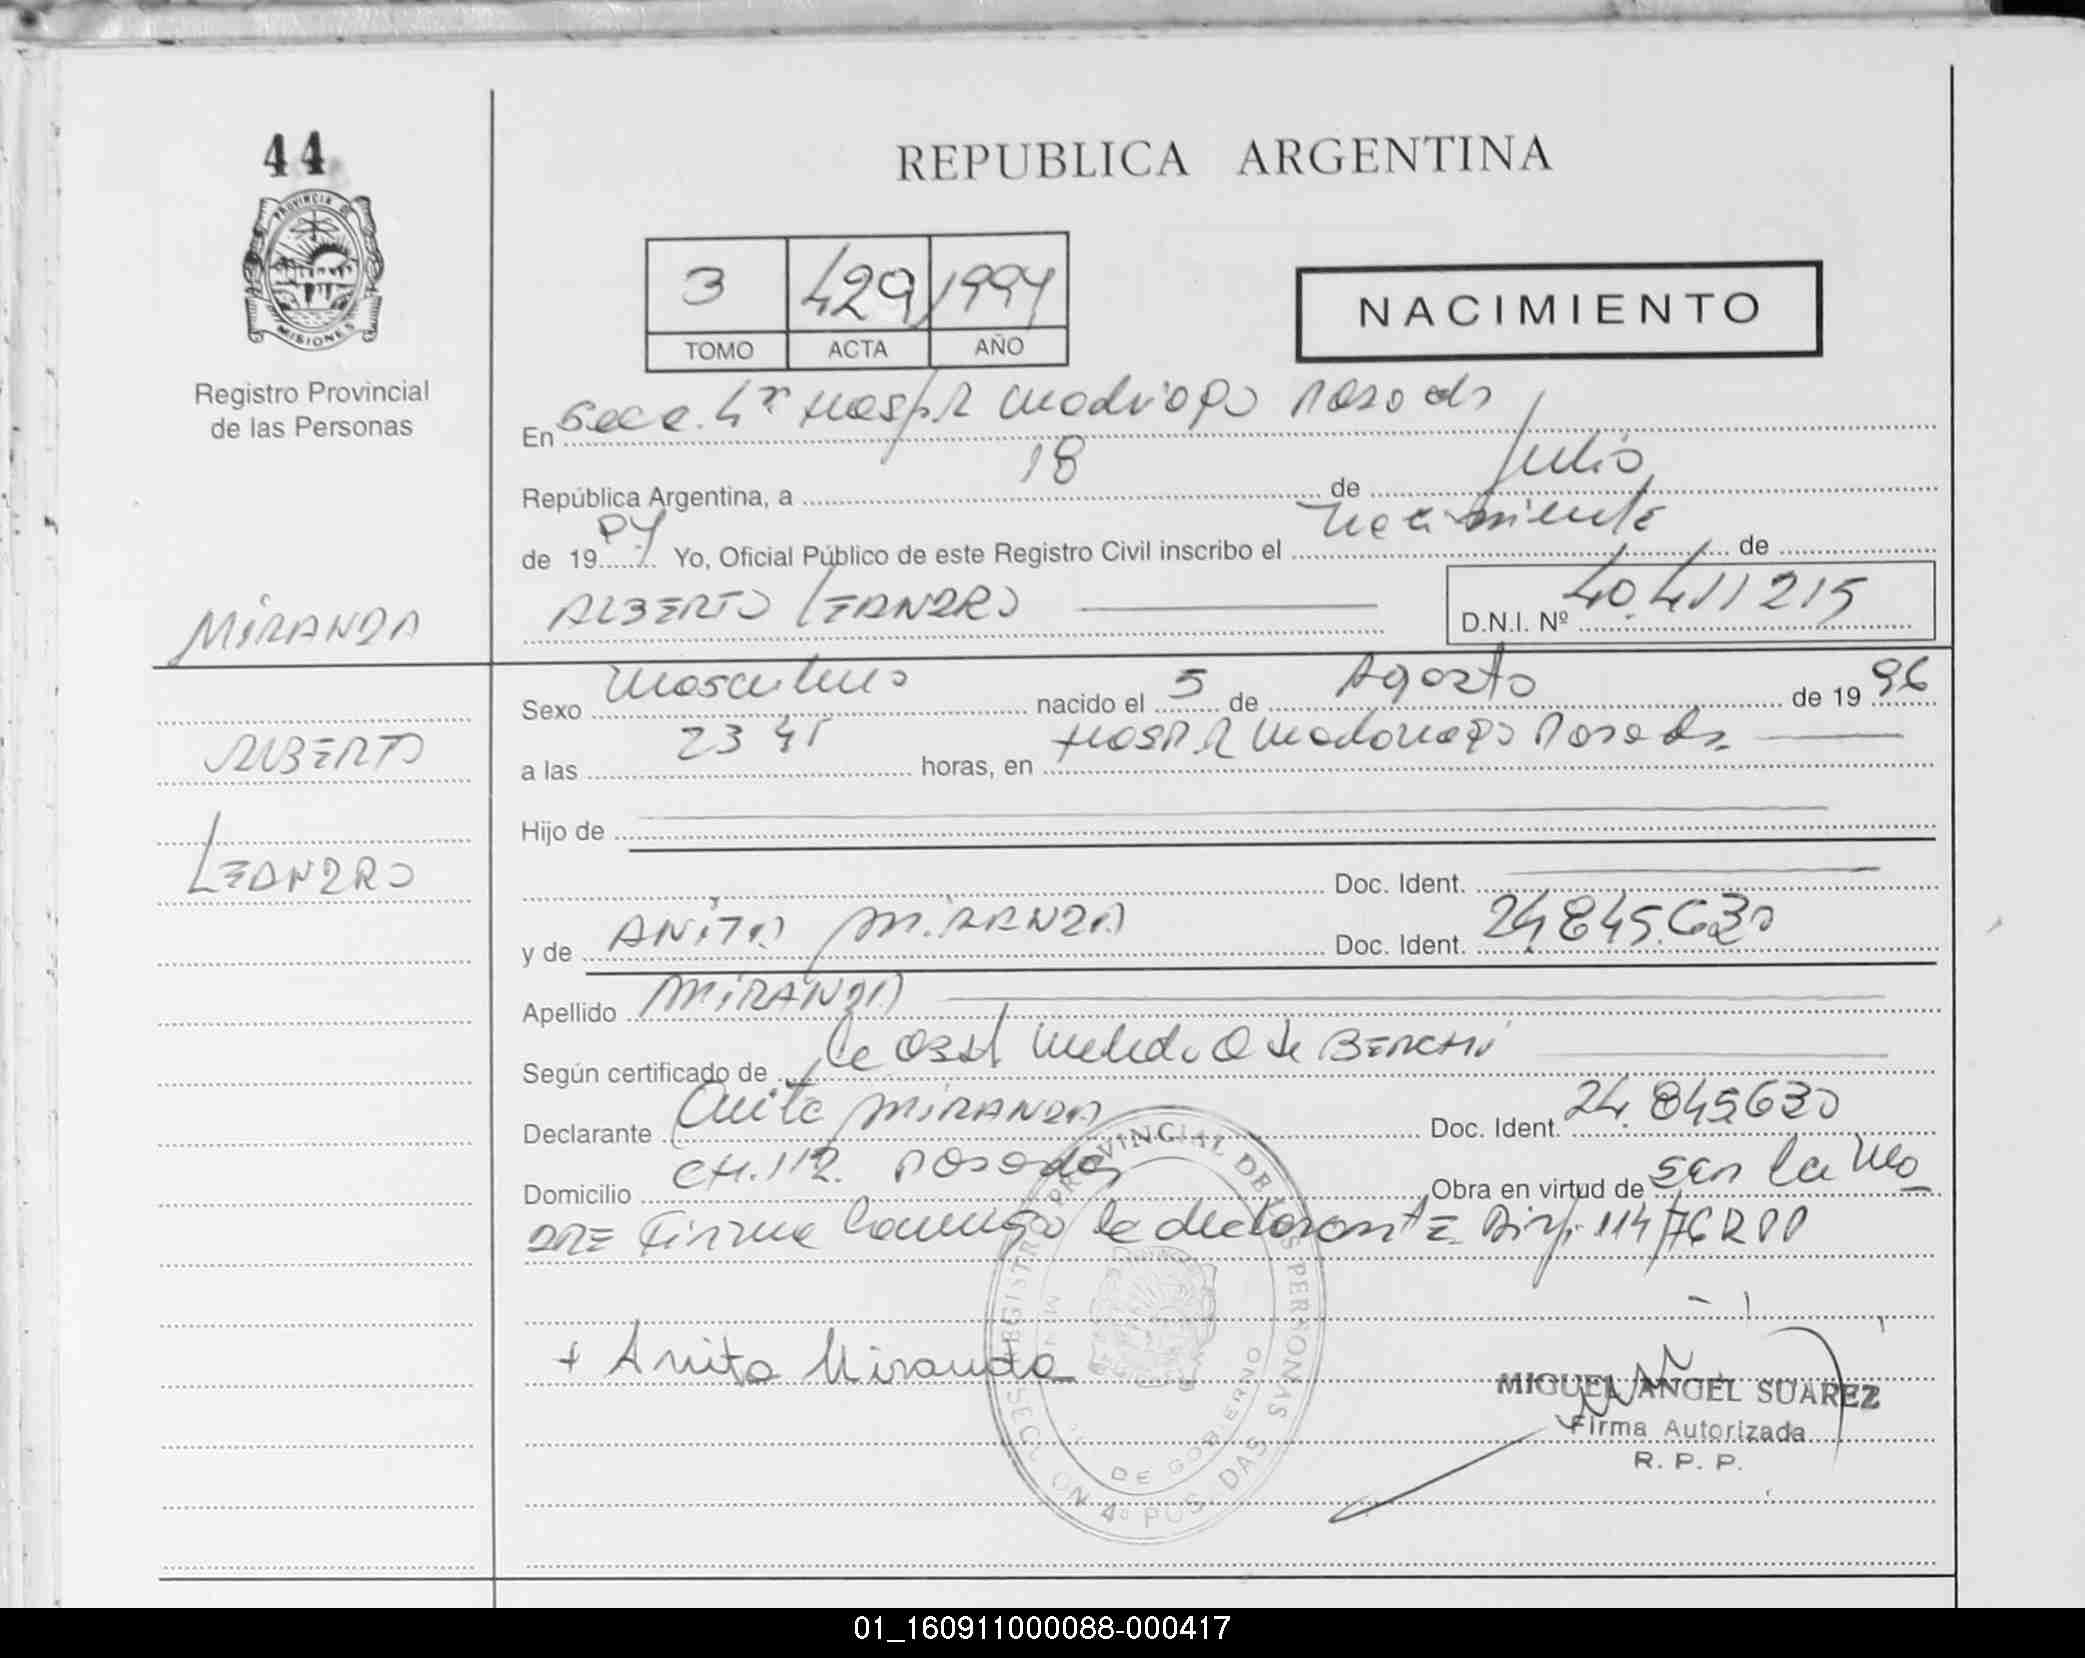 44
PROVINCIA DE
MISIONES
Registro Provincial
de las Personas
REPUBLICA ARGENTINA
3 429 1997
TOMO ACTA AÑO
NACIMIENTO
En Secc. 4ª Hosp. R Madariaga Posadas
República Argentina, a 18 de Julio
de 1997 Yo, Oficial Público de este Registro Civil inscribo el nacimiento de
ALBERTO LEANDRO
D.N.I. Nº 40.411215
MIRANDA
ALBERTO
LEANDRO
Sexo Masculino nacido el 5 de Agosto de 19 96
a las 23 45 horas, en Hosp. R Madariaga Posadas
Hijo de
Doc. Ident.
y de ANITA MIRANDA Doc. Ident. 24.845.630
Apellido MIRANDA
Según certificado de de BENCHI
Declarante Anita MIRANDA Doc. Ident. 24.845630
Domicilio CH.112. Posadas Obra en virtud de ser la Ma
DRE Firma conmigo la declarante Disp. 114/76 RPP
+ Anita Miranda
REGISTRO PROVINCIAL DE LAS PERSONAS
SECCION 4ª POSADAS
DE GOBIERNO
MIGUEL ANGEL SUAREZ
Firma Autorizada
R. P. P.
01_160911000088-000417